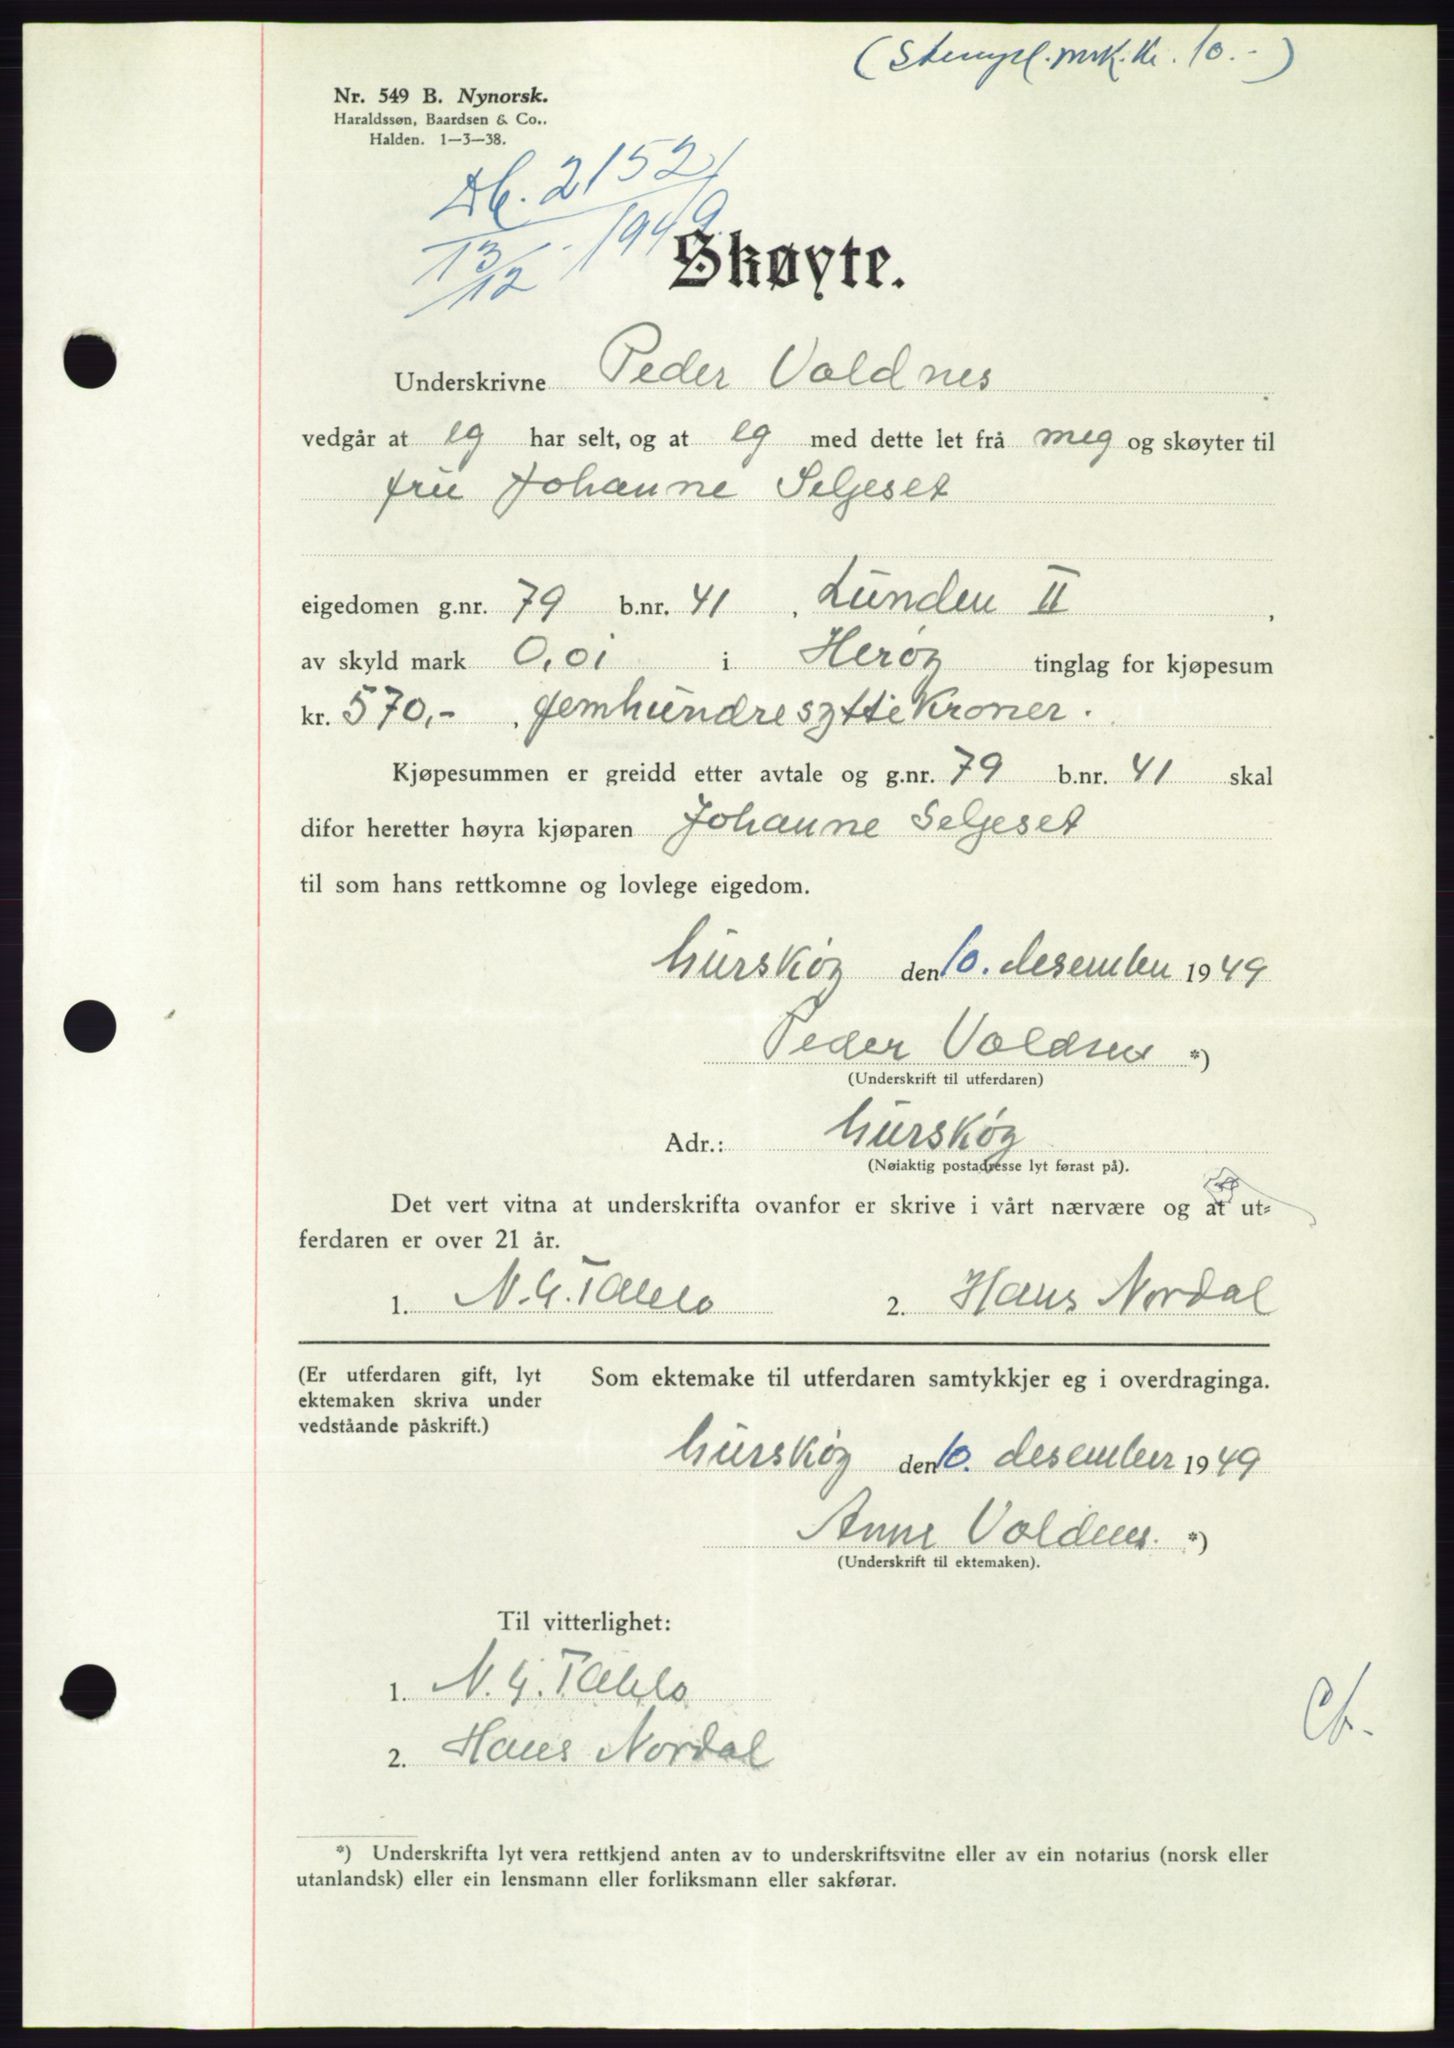 (Stempl.mrk.kr. 10.-)
Nr. 549 B. Nynorsk.
Haraldssøn, Baardsen & Co..
Halden. 1—3—38.
Db. 2152/1949
13/12 -
Skøyte.
Underskrivne Peder Voldnes
vedgår at eg har selt, og at eg med dette let frå meg og skøyter til
fru Johanne Seljeset
eigedomen g.nr. 79 b.nr. 41 , Lunden II ,
av skyld mark 0,01 i Herøy tinglag for kjøpesum
kr. 570,- , femhundresyttikroner.
Kjøpesummen er greidd etter avtale og g.nr. 79 b.nr. 41 skal
difor heretter høyra kjøparen Johanne Seljeset
til som hans rettkomne og lovlege eigedom.
Gurskøy den 10. desember 1949
Peder Voldnes *)
(Underskrift til utferdaren)
Adr.: Gurskøy
(Nøiaktig postadresse lyt førast på).
Det vert vitna at underskrifta ovanfor er skrive i vårt nærvære og at ut-
ferdaren er over 21 år.
1. N. G. 2. Hans Nordal
(Er utferdaren gift, lyt
ektemaken skriva under
vedståande påskrift.)
Som ektemake til utferdaren samtykkjer eg i overdraginga.
Gurskøy den 10. desember 1949
Anne Voldnes. *)
(Underskrift til ektemaken).
Til vitterlighet:
1. N. G.
2. Hans Nordal
*) Underskrifta lyt vera rettkjend anten av to underskriftsvitne eller av ein notarius (norsk eller
utanlandsk) eller ein lensmann eller forliksmann eller sakførar.